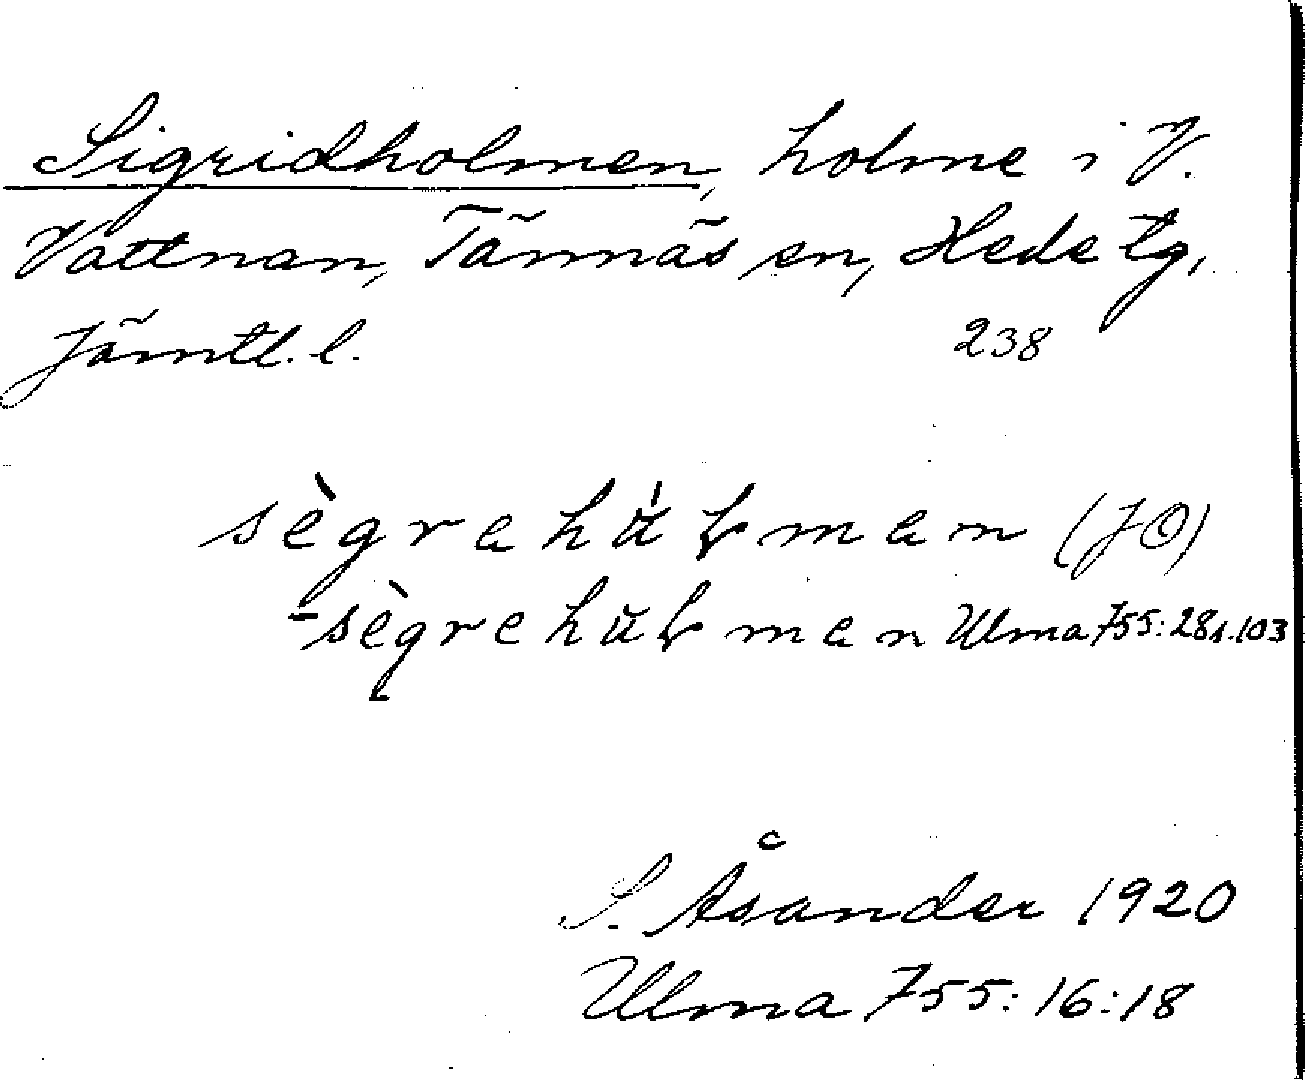 Sigridholmen, holme i V.
Vattnan, Tännäs sn, Hede tg,
Jämtl. l. 238
sègrehåɫmen (JÖ)
-sègrehåɫmen Ulma 755: 28 s. 103
S. Åsander 1920
Ulma 755: 16:18